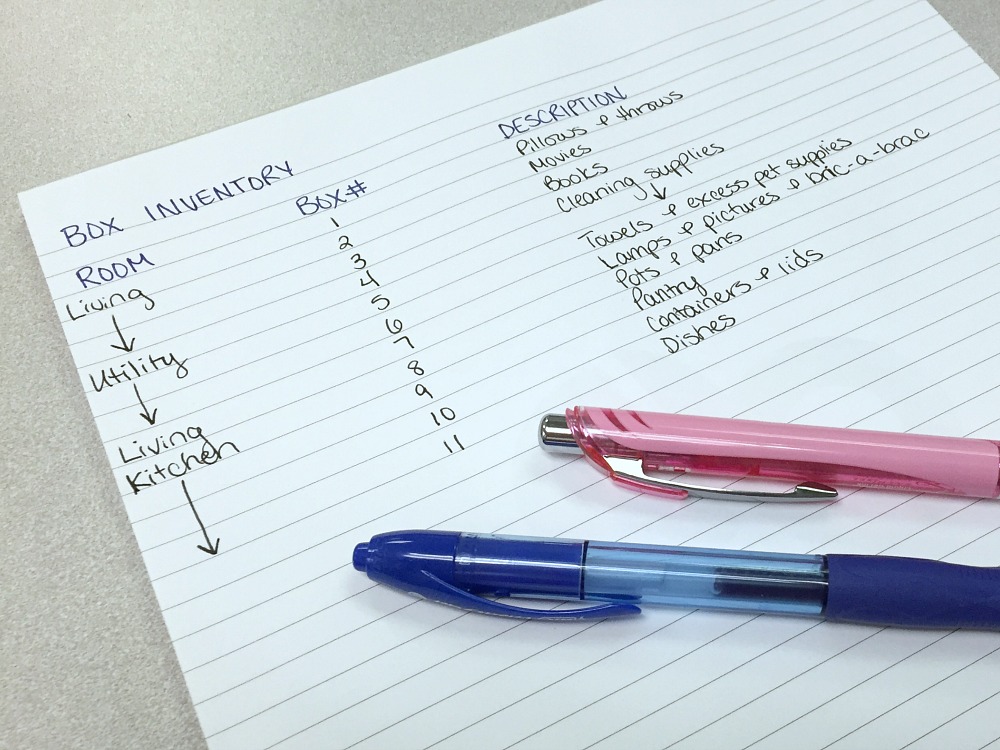 BOX INVENTORY
ROOM BOX# DESCRIPTION
Living 1 Pillows & throws
↓ 2 Movies
3 Books
Utility 4 Cleaning supplies
↓ 5 ↓
6 Towels & excess pet supplies
Living 7 Lamps & pictures & bric-a-brac
Kitchen 8 Pots & pans
↓ 9 Pantry
10 Containers & lids
11 Dishes